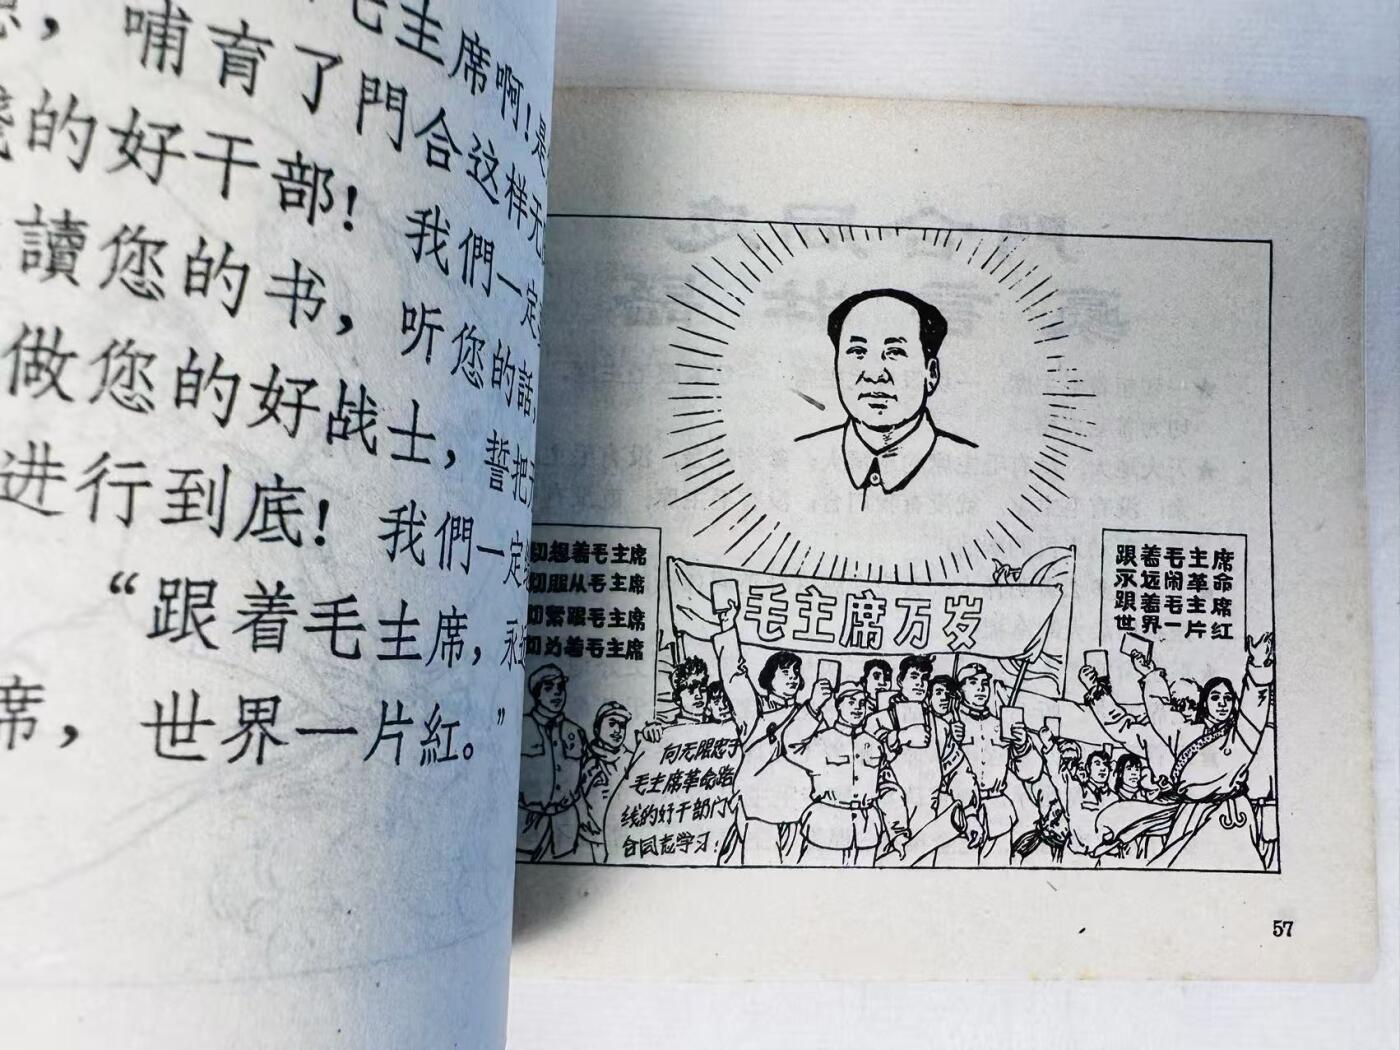 毛主席啊！是
，哺育了門合这样无
的好干部！我們一定
讀您的书，听您的話，
做您的好战士，誓把
进行到底！我們一定
“跟着毛主席，永
席，世界一片紅。”
切想着毛主席
切服从毛主席
切紧跟毛主席
切为着毛主席
毛主席万岁
跟着毛主席
永远闹革命
跟着毛主席
世界一片红
向无限忠于
毛主席革命路
线的好干部门
合同志学习！
57